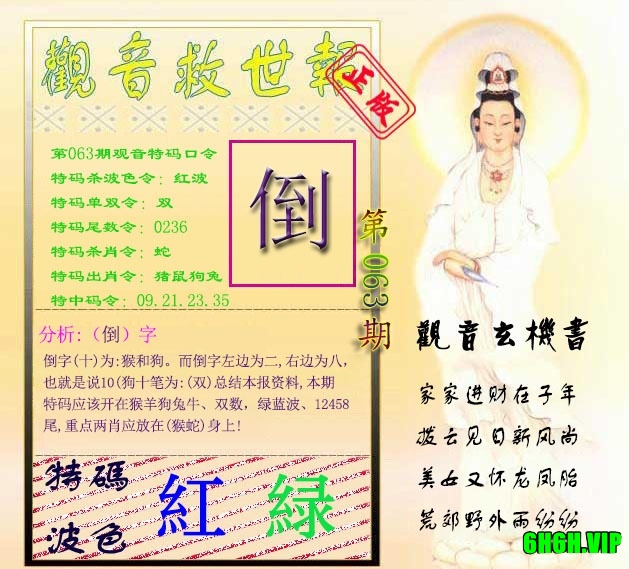 觀音救世報
正版
第063期观音特码口令
特码杀波色令：红波
特码单双令：双
特码尾数令：0236
特码杀肖令：蛇
特码出肖令：猪鼠狗兔
特中码令：09.21.23.35
倒
第063期
分析:（倒）字
倒字(十)为:猴和狗。而倒字左边为二,右边为八，
也就是说10(狗十笔为:(双)总结本报资料,本期
特码应该开在猴羊狗兔牛、双数，绿蓝波、12458
尾,重点两肖应放在(猴蛇)身上!
特碼
波色
紅 緑
觀音玄機書
家家进财在子年
拨云见日新风尚
美女又怀龙凤胎
荒郊野外雨纷纷
6H6H.VIP